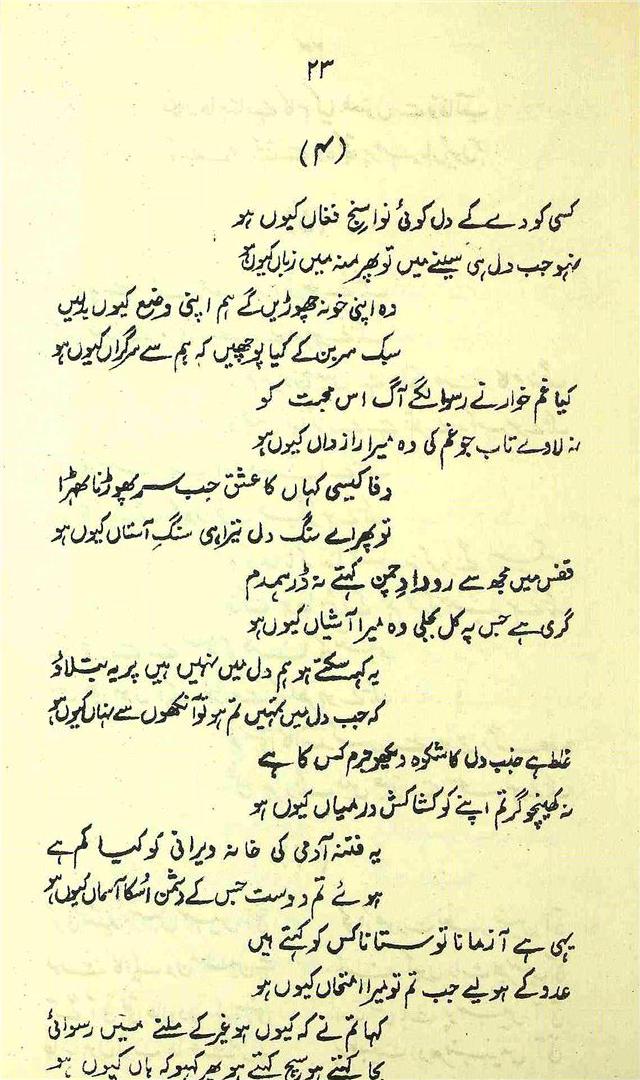 ۲۳
(۴)
کسی کو دے کے دل کوئی نوا سنجِ فغاں کیوں ہو
نہو جب دل ہی سینے میں تو پھر منہ میں زباں کیوں ہو
وہ اپنی خو نہ چھوڑیں گے ہم اپنی وضع کیوں بدلیں
سبک سر بن کے کیا پوچھیں کہ ہم سے سرگراں کیوں ہو
کیا غم خوار نے رسوا لگے آگ اس محبت کو
نہ لاوے تاب جو غم کی وہ میرا رازداں کیوں ہو
وفا کیسی کہاں کا عشق جب سر پھوڑنا ٹھہرا
تو پھر اے سنگ دل تیرا ہی سنگِ آستاں کیوں ہو
قفس میں مجھ سے رودادِ چمن کہتے نہ ڈر ہمدم
گری ہے جس پہ کل بجلی وہ میرا آشیاں کیوں ہو
یہ کہہ سکتے ہو ہم دل میں نہیں ہیں پر یہ بتلاؤ
کہ جب دل میں تمہیں تم ہو تو آنکھوں سے نہاں کیوں ہو
غلط ہے جذب دل کا شکوہ دیکھو جرم کس کا ہے
نہ کھینچو گر تم اپنے کو کشاکش درمیاں کیوں ہو
یہ فتنہ آدمی کی خانہ ویرانی کو کیا کم ہے
ہوئے تم دوست جس کے دشمن اُسکا آسماں کیوں ہو
یہی ہے آزمانا تو ستانا کس کو کہتے ہیں
عدو کے ہو لیے جب تم تو میرا امتحاں کیوں ہو
کہا تم نے کہ کیوں ہو غیر کے ملنے میں رسوائی
بجا کہتے ہو سچ کہتے ہو پھر کہیو کہ ہاں کیوں ہو